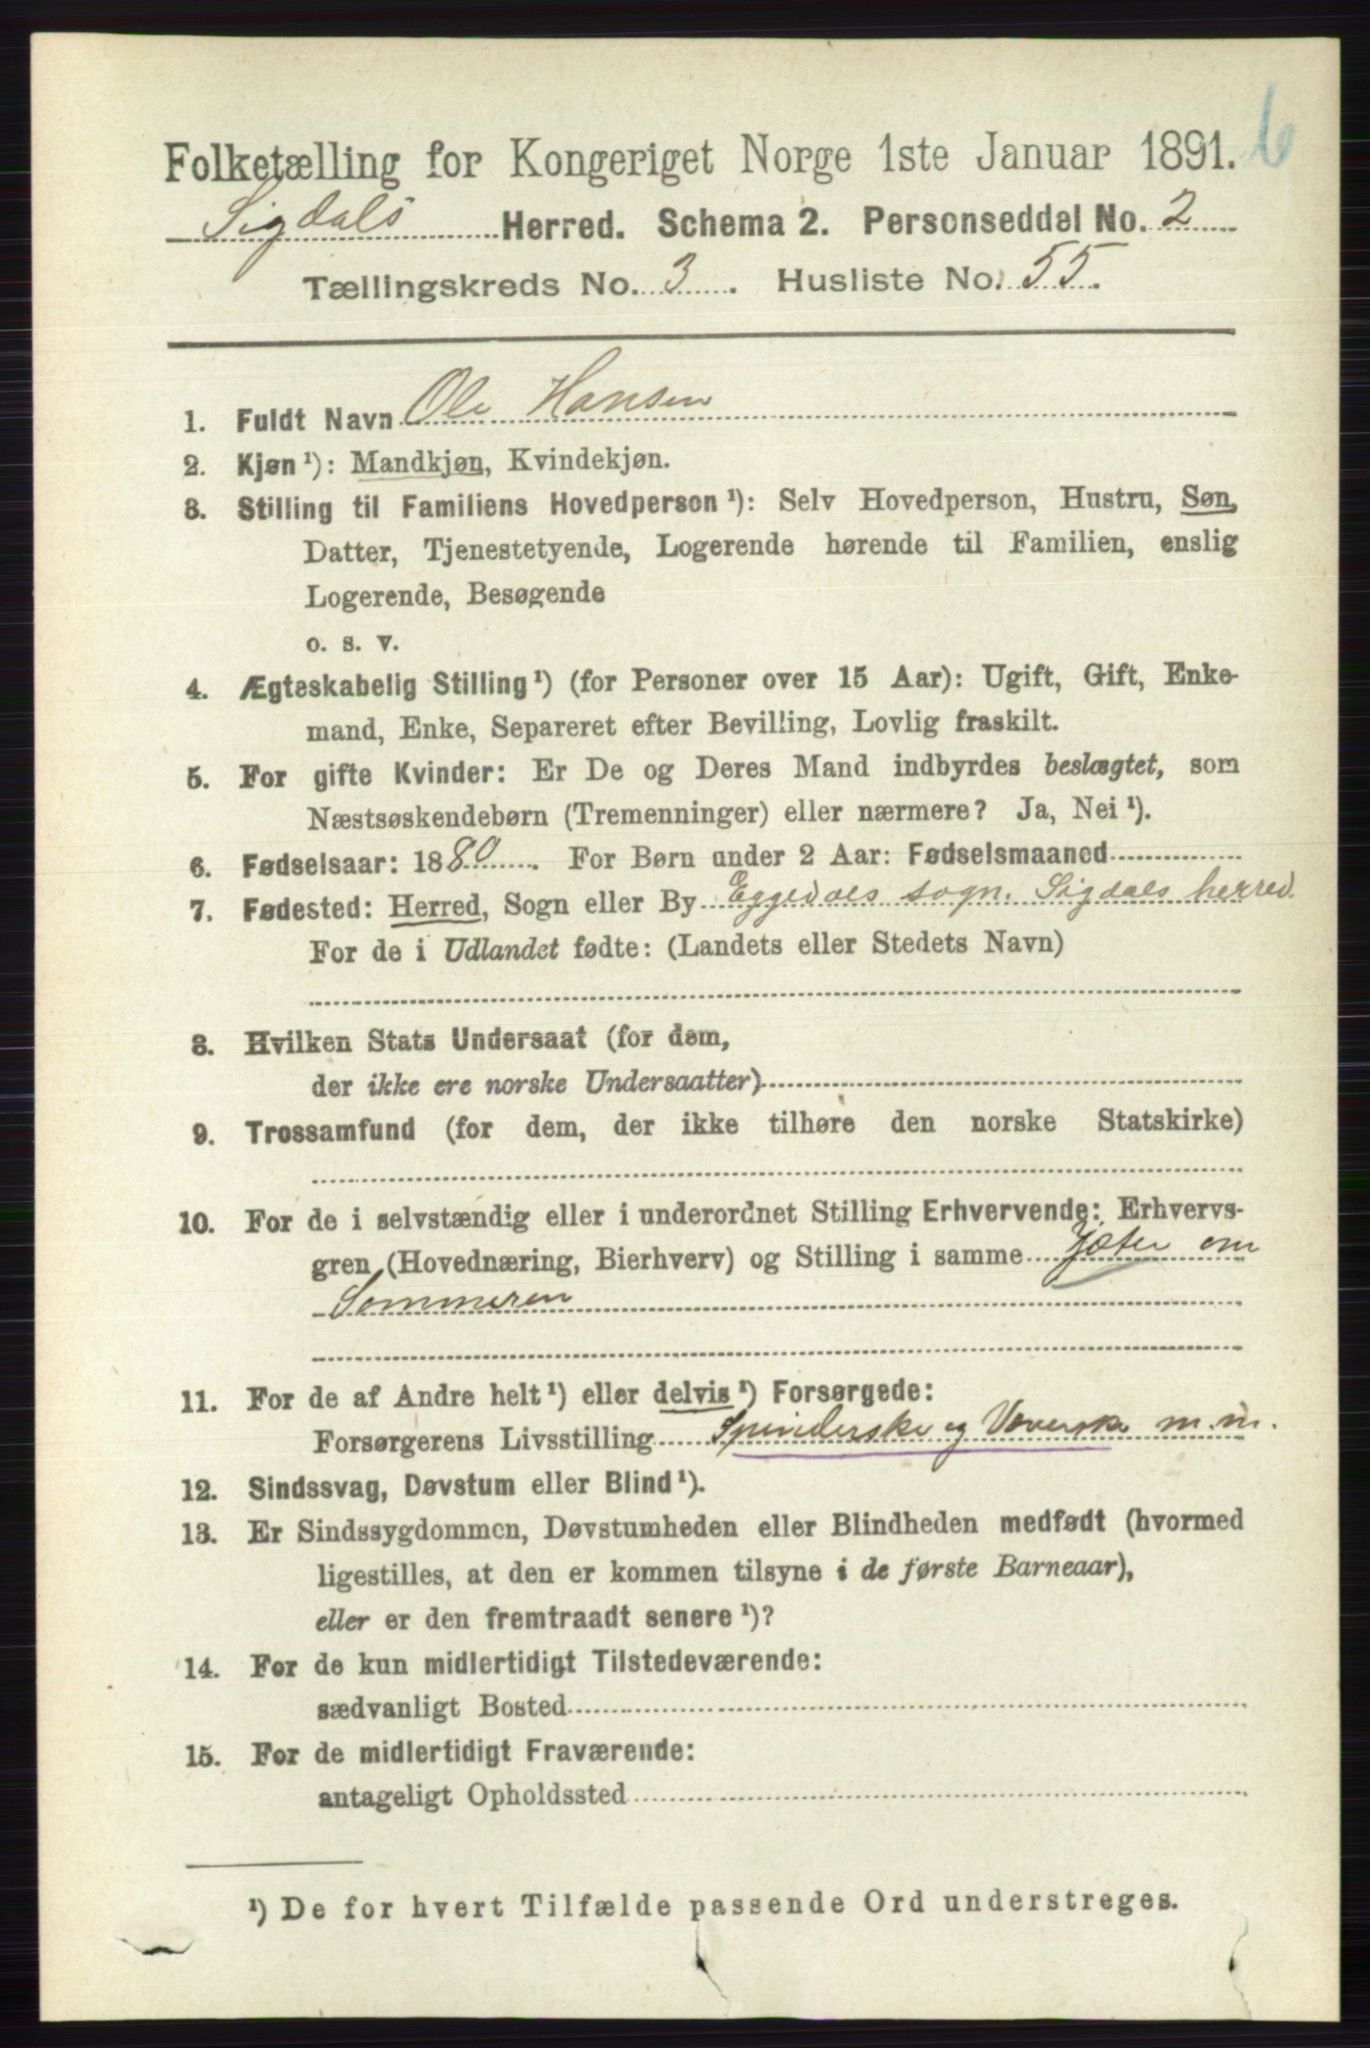 6
Folketælling for Kongeriget Norge 1ste Januar 1891.
Sigdals Herred. Schema 2. Personseddel No. 2
Tællingskreds No. 3. Husliste No. 55.
1. Fuldt Navn Ole Hansen
2. Kjøn ¹): Mandkjøn, Kvindekjøn.
3. Stilling til Familiens Hovedperson ¹): Selv Hovedperson, Hustru, Søn,
Datter, Tjenestetyende, Logerende hørende til Familien, enslig
Logerende, Besøgende
o. s. v.
4. Ægteskabelig Stilling ¹) (for Personer over 15 Aar): Ugift, Gift, Enke-
mand, Enke, Separeret efter Bevilling, Lovlig fraskilt.
5. For gifte Kvinder: Er De og Deres Mand indbyrdes beslægtet, som
Næstsøskendebørn (Tremenninger) eller nærmere? Ja, Nei ¹).
6. Fødselsaar: 1880. For Børn under 2 Aar: Fødselsmaaned
7. Fødested: Herred, Sogn eller By Eggedals sogn. Sigdals herred.
For de i Udlandet fødte: (Landets eller Stedets Navn)
8. Hvilken Stats Undersaat (for dem,
der ikke ere norske Undersaatter)
9. Trossamfund (for dem, der ikke tilhøre den norske Statskirke)
10. For de i selvstændig eller i underordnet Stilling Erhvervende: Erhvervs-
gren (Hovednæring, Bierhverv) og Stilling i samme Jæter om
Sommeren
11. For de af Andre helt ¹) eller delvis ¹) Forsørgede:
Forsørgerens Livsstilling Spinderske og Væverske m.m.
12. Sindssvag, Døvstum eller Blind ¹).
13. Er Sindssygdommen, Døvstumheden eller Blindheden medfødt (hvormed
ligestilles, at den er kommen tilsyne i de første Barneaar),
eller er den fremtraadt senere ¹)?
14. For de kun midlertidigt Tilstedeværende:
sædvanligt Bosted
15. For de midlertidigt Fraværende:
antageligt Opholdssted
¹) De for hvert Tilfælde passende Ord understreges.